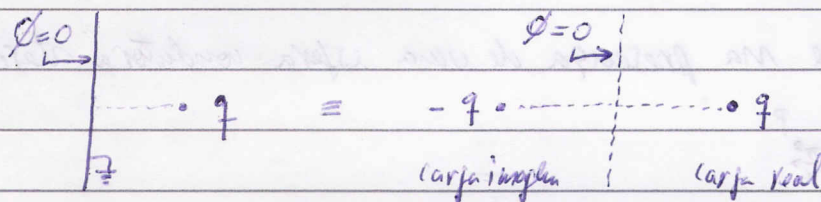 ϕ=0 ϕ=0
q ≡ -q q
carga imagem carga real